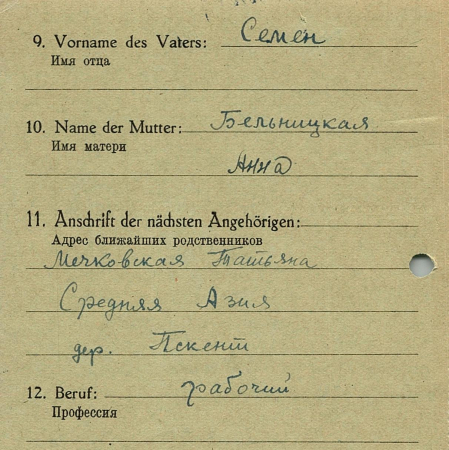 9. Vorname des Vaters: Семен
Имя отца
10. Name der Mutter: Бельницкая
Имя матери
Анна
11. Anschrift der nächsten Angehörigen:
Адрес ближайших родственников
Мечковская Татьяна
Средняя Азия
дер. Пскент
12. Beruf: рабочий
Профессия